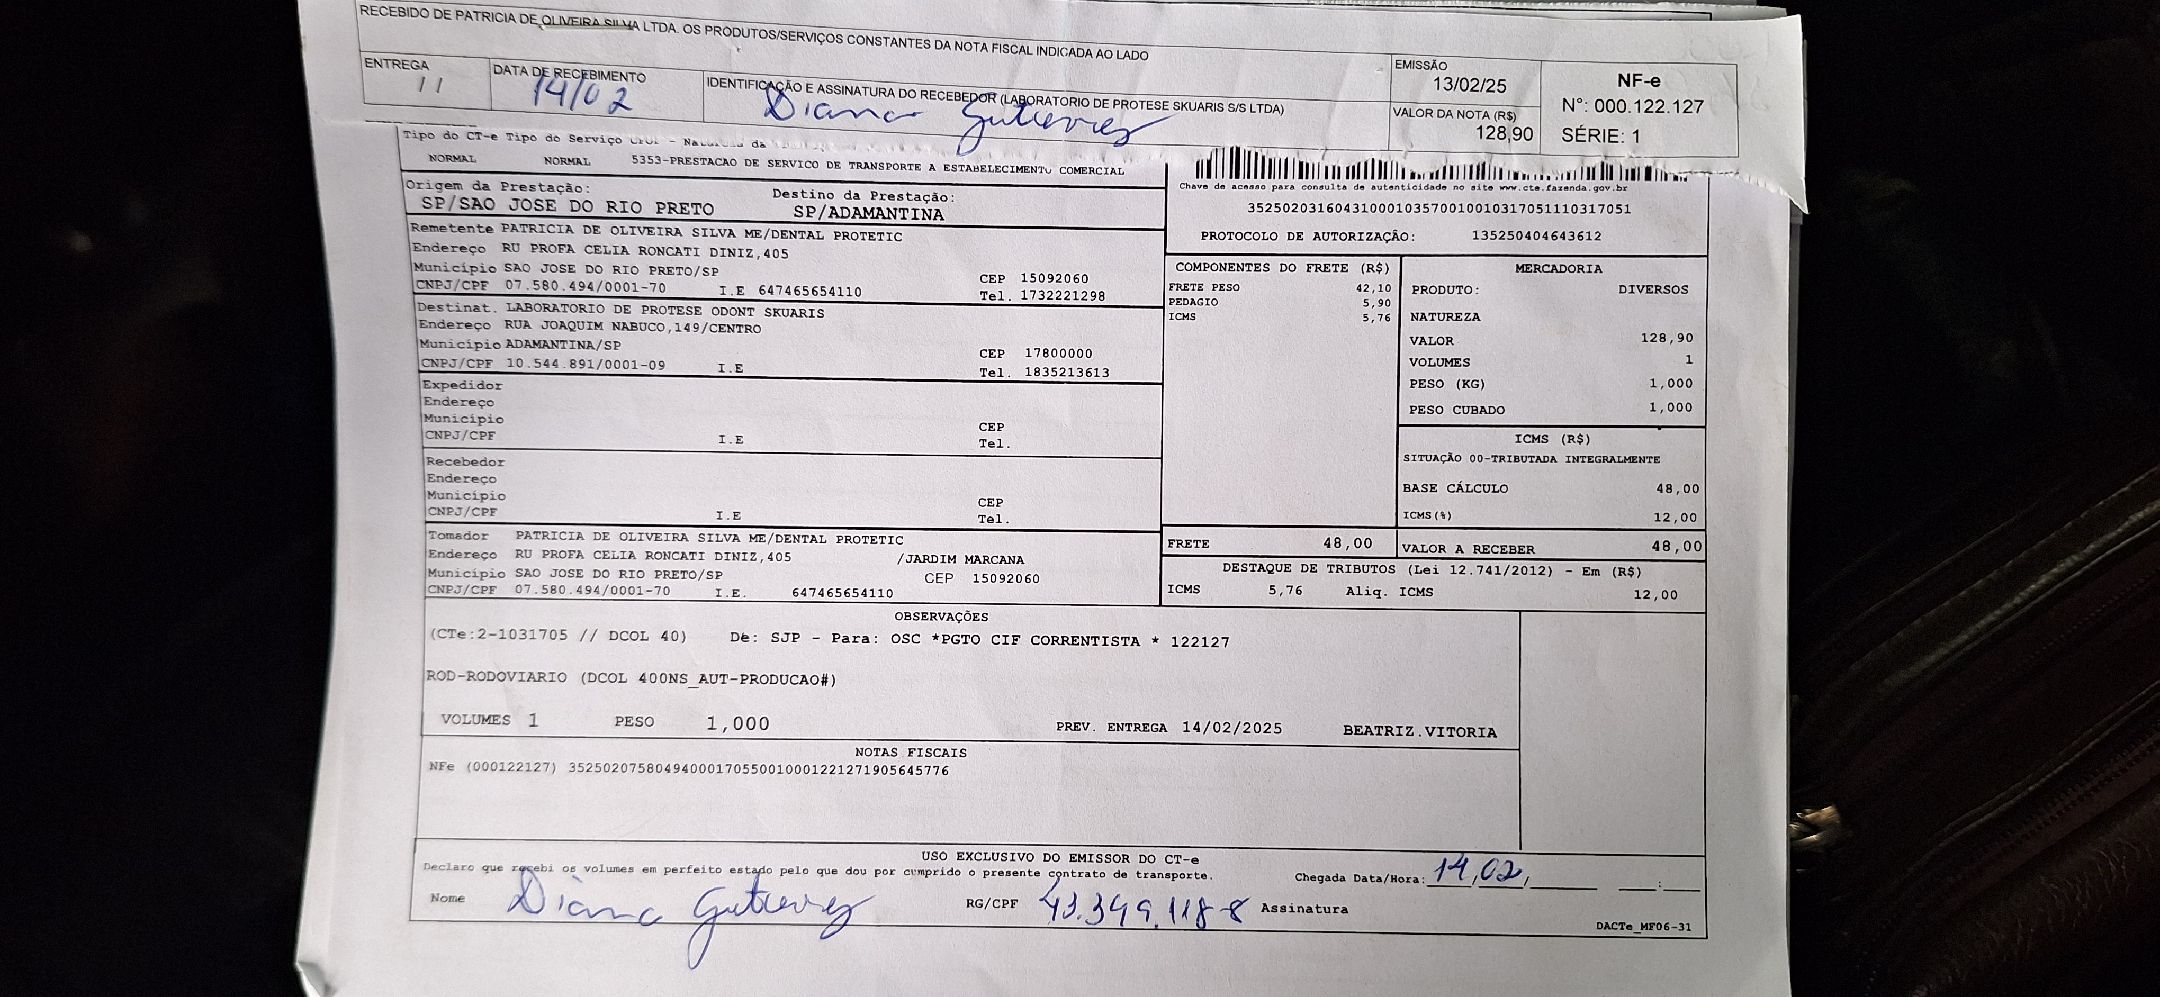 RECEBIDO DE PATRICIA DE OLIVEIRA SILVA LTDA. OS PRODUTOS/SERVIÇOS CONSTANTES DA NOTA FISCAL INDICADA AO LADO
ENTREGA
11
DATA DE RECEBIMENTO
14/02
IDENTIFICAÇÃO E ASSINATURA DO RECEBEDOR (LABORATORIO DE PROTESE SKUARIS S/S LTDA)
Diana Gutierrez
EMISSÃO
13/02/25
VALOR DA NOTA (R$)
128,90
NF-e
N°: 000.122.127
SÉRIE: 1
Tipo do CT-e Tipo do Serviço CFOP - Natureza da
NORMAL NORMAL 5353-PRESTACAO DE SERVICO DE TRANSPORTE A ESTABELECIMENTO COMERCIAL
Origem da Prestação:
SP/SAO JOSE DO RIO PRETO
Destino da Prestação:
SP/ADAMANTINA
Chave de acesso para consulta de autenticidade no site www.cte.fazenda.gov.br
35250203160431000103570010010317051110317051
PROTOCOLO DE AUTORIZAÇÃO: 135250404643612
Remetente PATRICIA DE OLIVEIRA SILVA ME/DENTAL PROTETIC
Endereço RU PROFA CELIA RONCATI DINIZ,405
Município SAO JOSE DO RIO PRETO/SP CEP 15092060
CNPJ/CPF 07.580.494/0001-70 I.E 647465654110 Tel. 1732221298
Destinat. LABORATORIO DE PROTESE ODONT SKUARIS
Endereço RUA JOAQUIM NABUCO,149/CENTRO
Município ADAMANTINA/SP CEP 17800000
CNPJ/CPF 10.544.891/0001-09 I.E Tel. 1835213613
Expedidor
Endereço
Município CEP
CNPJ/CPF I.E Tel.
Recebedor
Endereço
Município CEP
CNPJ/CPF I.E Tel.
Tomador PATRICIA DE OLIVEIRA SILVA ME/DENTAL PROTETIC
Endereço RU PROFA CELIA RONCATI DINIZ,405 /JARDIM MARCANA
Município SAO JOSE DO RIO PRETO/SP CEP 15092060
CNPJ/CPF 07.580.494/0001-70 I.E. 647465654110
COMPONENTES DO FRETE (R$)
FRETE PESO 42,10
PEDAGIO 5,90
ICMS 5,76
FRETE 48,00
MERCADORIA
PRODUTO: DIVERSOS
NATUREZA
VALOR 128,90
VOLUMES 1
PESO (KG) 1,000
PESO CUBADO 1,000
ICMS (R$)
SITUAÇÃO 00-TRIBUTADA INTEGRALMENTE
BASE CÁLCULO 48,00
ICMS(%) 12,00
VALOR A RECEBER 48,00
DESTAQUE DE TRIBUTOS (Lei 12.741/2012) - Em (R$)
ICMS 5,76 Aliq. ICMS 12,00
OBSERVAÇÕES
(CTe:2-1031705 // DCOL 40) De: SJP - Para: OSC *PGTO CIF CORRENTISTA * 122127
ROD-RODOVIARIO (DCOL 400NS_AUT-PRODUCAO#)
VOLUMES 1 PESO 1,000 PREV. ENTREGA 14/02/2025 BEATRIZ.VITORIA
NOTAS FISCAIS
NFe (000122127) 35250207580494000170550010001221271905645776
USO EXCLUSIVO DO EMISSOR DO CT-e
Declaro que recebi os volumes em perfeito estado pelo que dou por cumprido o presente contrato de transporte. Chegada Data/Hora: 14,02,
Nome Diana Gutierrez RG/CPF 43.349.118-8 Assinatura
DACTe_MF06-31